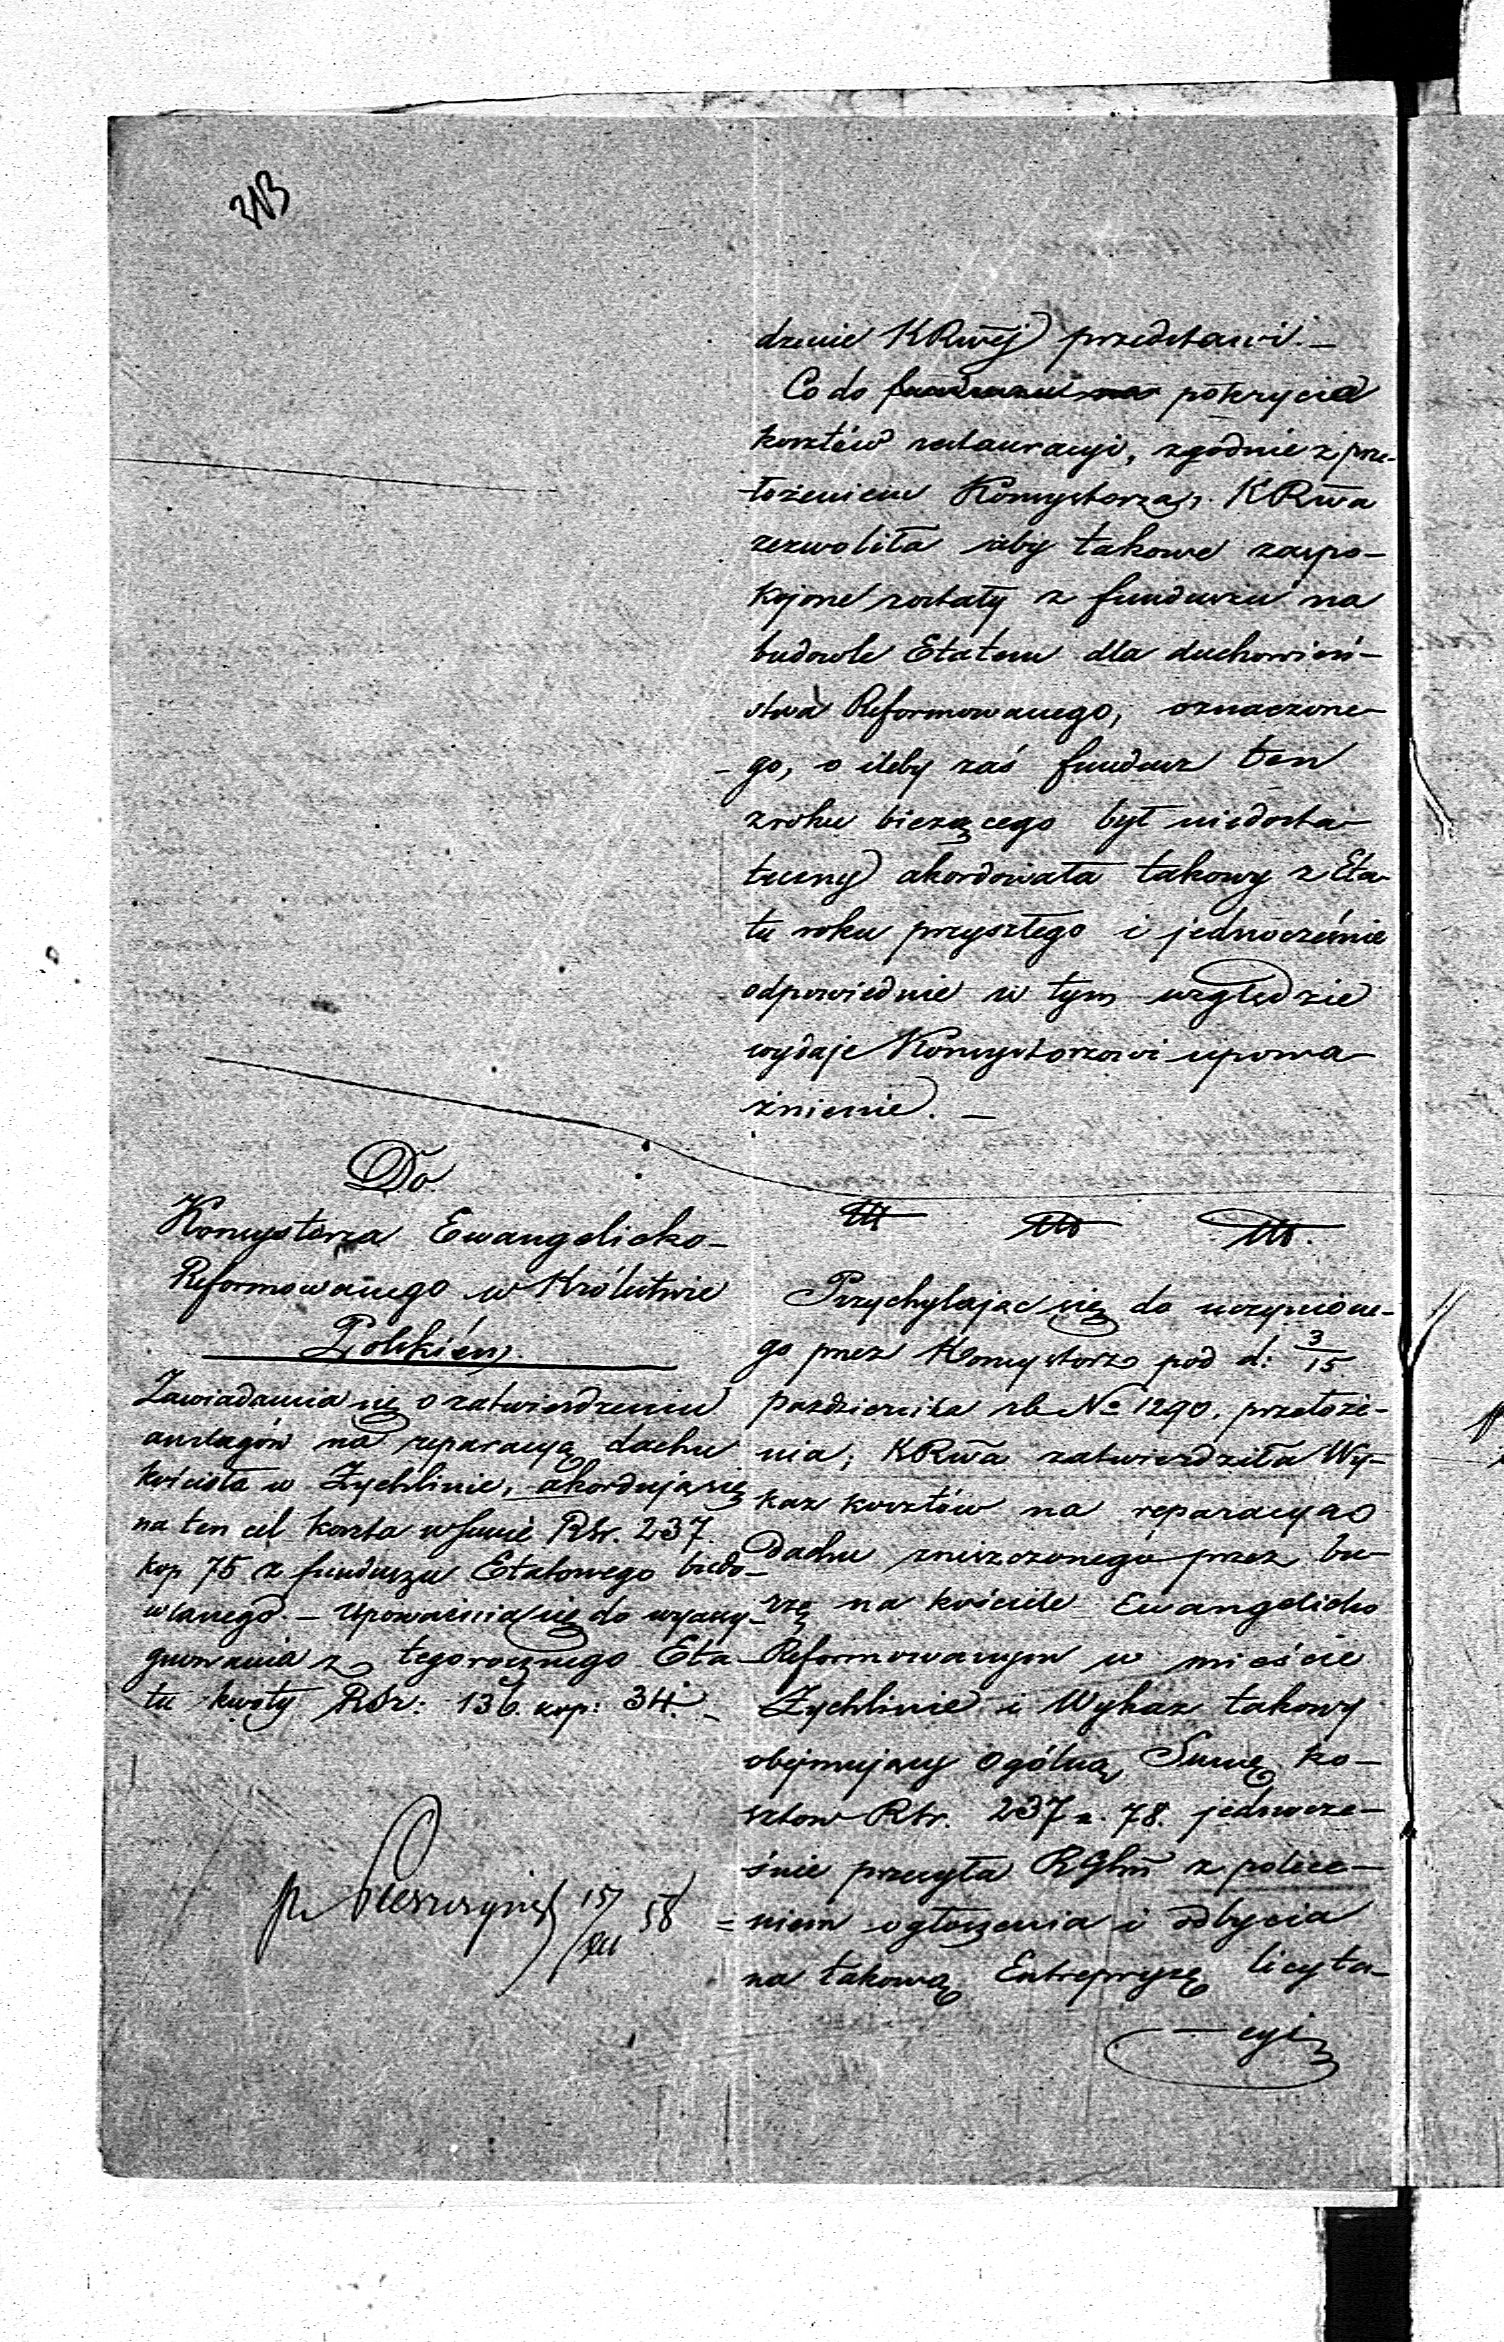 313
dzenie KRwej przedstawi. —
Co do funduszu na pokrycia
kosztów restauracyi, zgodnie z prze-
łożeniem Konsystorza, KRwa
zezwoliła aby takowe zaspo-
kojone zostały z funduszu na
budowle Etatem dla duchowień-
stwa Reformowanego, oznaczone-
go, o ileby zaś fundusz ten
z roku bieżącego był niedosta-
teczny akordowała takowy z Eta-
tu roku przyszłego i jednocześnie
odpowiednie w tym względzie
wydaje Konsystorzowi upowa-
żnienie. —
Do
Konsystorza Ewangelicko-
Reformowanego w Królestwie
Polskiém.
Zawiadamia się o zatwierdzeniu
anszlagów na reparacyą dachu
kościoła w Żychlinie, akordują się
na ten cel koszta w Sumie Rsr. 237.
kop 75 z funduszu Etatowego budo-
wlanego. — Upoważnia się do wyasy-
gnowania z tegorocznego Eta-
tu kwoty RSr: 136. kop: 34. —
15/XII 58
Przychylając się do uczynione-
go przez Konsystorz pod d: 3/15
Października rb No 1290. przełoże-
nia, KRwa zatwierdziła Wy-
kaz kosztów na reparacyą
dachu zniszczonego przez bu-
rzę na kościele Ewangelicko
Reformowanym w mieście
Żychlinie i Wykaz takowy
obejmujący Ogólną Sumę ko-
sztow Rsr. 237 k. 78. jednocze-
śnie przesyła RGlnu z polece-
niem ogłoszenia i odbycia
na takową Entrepryzę licyta-
cyi